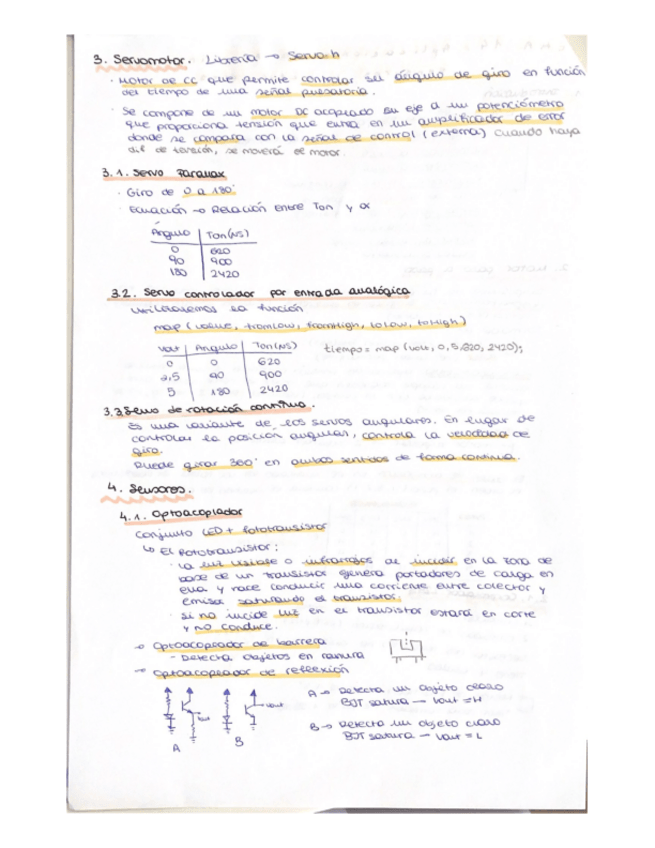 3. Servomotor. Librería → Servo.h
· Motor de CC que permite controlar su ángulo de giro en función
del tiempo de una señal pulsatoria.
· Se compone de un motor DC acoplado su eje a un potenciómetro
que proporciona tensión que entra en un amplificador de error
donde se compara con la señal de control (externa) Cuando haya
dif de tensión, se moverá el motor.
3.1. Servo Parallax
· Giro de 0 a 180°
· Ecuación → Relación entre Ton y α
Ángulo Ton(NS)
0 620
90 900
180 2420
3.2. Servo controlador por entrada analógica
Utilizaremos la función
map (value, fromLow, fromHigh, toLow, toHigh)
Volt Angulo Ton(NS) tiempo = map (volt, 0, 5, 620, 2420);
0 0 620
2,5 90 900
5 180 2420
3.3 Servo de rotación continua.
Es una variante de los servos angulares. En lugar de
controlar la posición angular, controla la velocidad de
giro.
Puede girar 360° en ambos sentidos de forma continua.
4. Sensores.
4.1. Optoacoplador
Conjunto LED + fototransistor
↳ El fototransistor:
· La luz visible o infrarrojos al incidir en la zona de
base de un transistor genera portadores de carga en
ella y hace conducir una corriente entre colector y
emisor saturando el transistor.
· Si no incide luz en el transistor estará en corte
y no conduce.
→ Optoacoplador de barrera
- Detecta objetos en ranura
→ Optoacoplador de reflexión
A → Detecta un objeto claro
BJT satura → Vout = H
Vout Vout
B → Detecta un objeto claro
BJT satura → Vout = L
A B